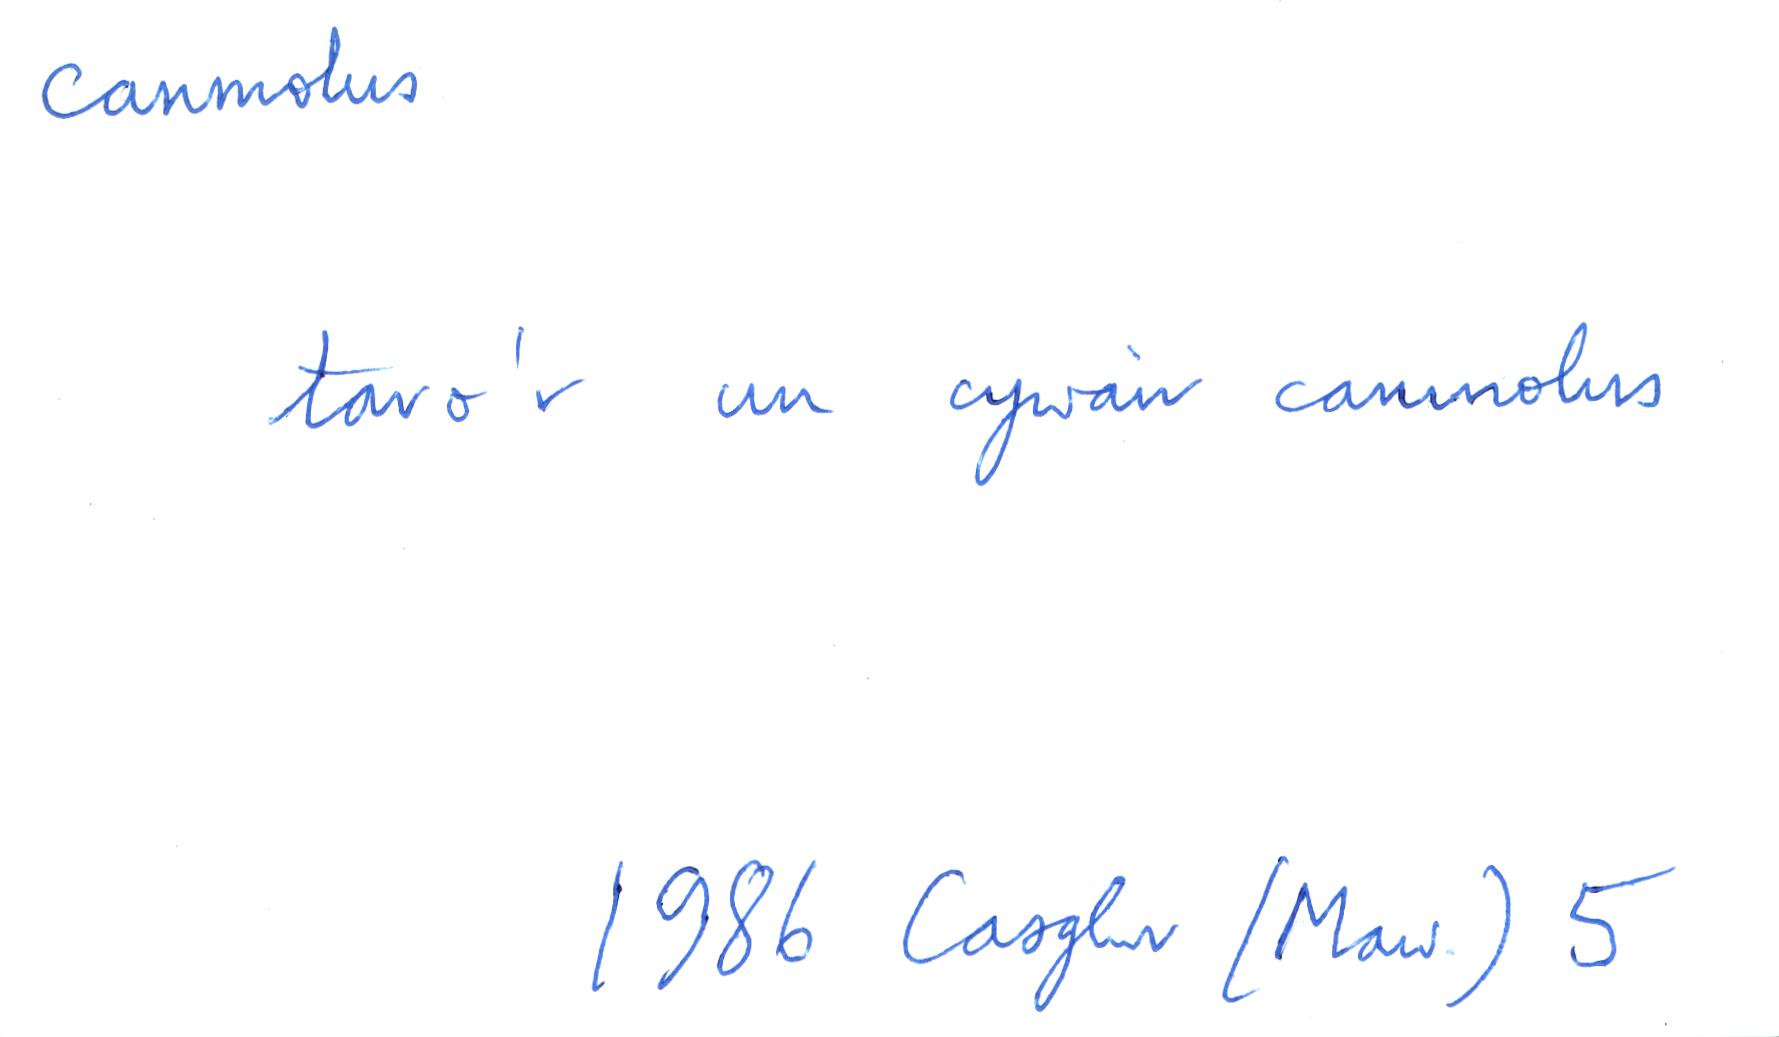 Canmolus
taro'r un cywair canmolus
1986 Casglwr (Maw.) 5